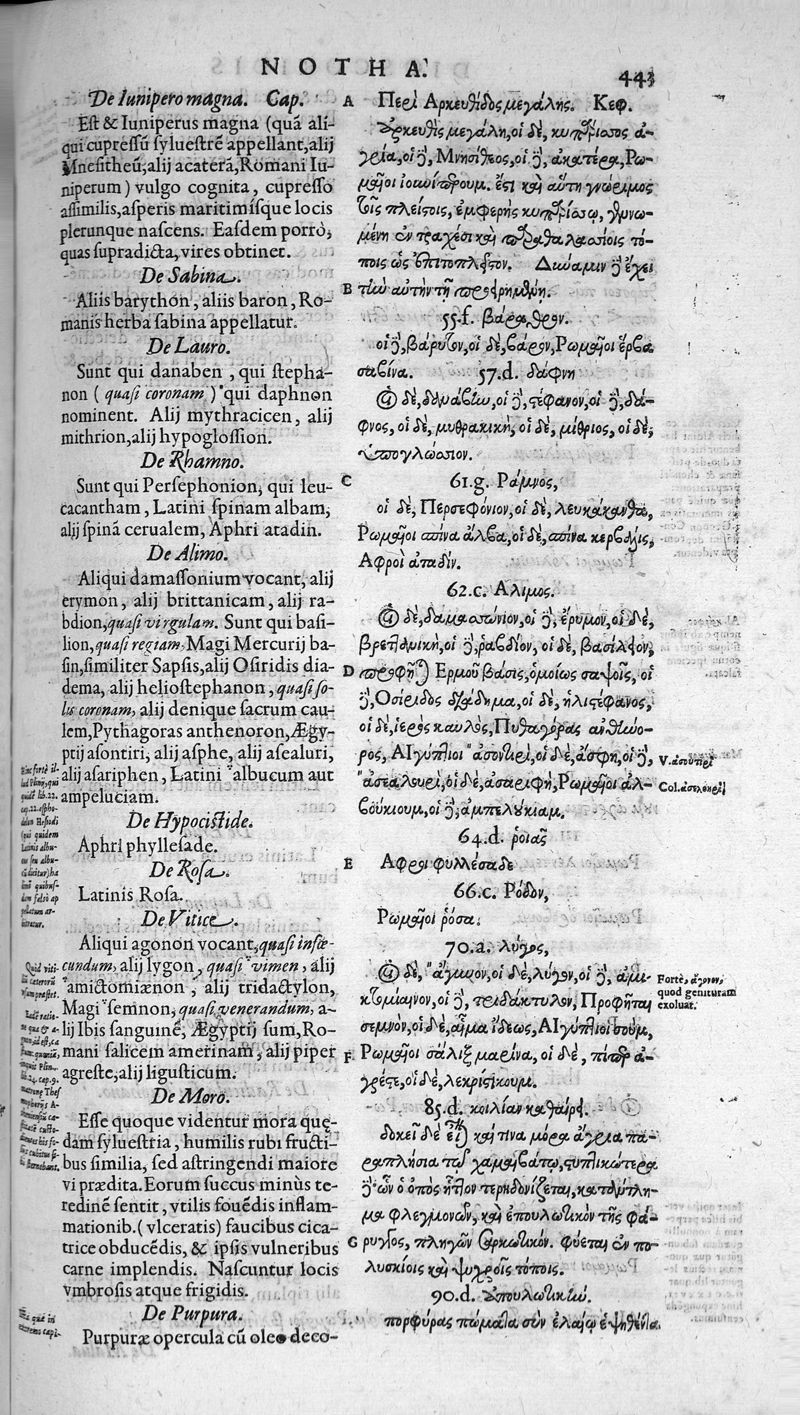 NOTHA.
443
De Iunipero magna. Cap.
Est & Iuniperus magna (quã ali-
qui cupressũ syluestrẽ appellant, alij
Mnesitheũ, alij acaterã, Romani Iu-
niperum) vulgo cognita, cupresso
assimilis, asperis maritimísque locis
plerunque nascens. Easdem porrò,
quas supradicta, vires obtinet.
De Sabina.
Aliis barython, aliis baron, Ro-
manis herba sabina appellatur.
De Lauro.
Sunt qui danaben, qui stepha-
non (quasi coronam) qui daphnon
nominent. Alij mythracicen, alij
mithrion, alij hypoglossion.
De Rhamno.
Sunt qui Persephonion, qui leu-
cacantham, Latini spinam albam,
alij spinã cerualem, Aphri atadin.
De Alimo.
Aliqui damassonium vocant, alij
erymon, alij brittanicam, alij ra-
bdion, quasi virgulam. Sunt qui basi-
lion, quasi regiam, Magi Mercurij ba-
sin, similiter Sapsis, alij Osiridis dia-
dema, alij heliostephanon, quasi so-
lis coronam, alij denique sacrum cau-
lem, Pythagoras anthenoron, Ægy-
ptij asontiri, alij asphe, alij asealuri,
alij asariphen, Latini albucum aut
ampeluciam.
De Hypocistide.
Aphri phyllesade.
De Rosa.
Latinis Rosa.
De Vitice.
Aliqui agonon vocant, quasi infœ-
cundum, alij lygon, quasi vimen, alij
amictomiænon, alij tridactylon,
Magi semnon, quasi venerandum, a-
lij Ibis sanguinẽ, Ægyptij sum, Ro-
mani salicem amerinam, alij piper
agreste, alij ligusticum.
De Moro.
Esse quoque videntur mora quę-
dam syluestria, humilis rubi fructi-
bus similia, sed astringendi maiore
vi prædita. Eorum succus minùs te-
redinẽ sentit, vtilis fouẽdis inflam-
mationib. (vlceratis) faucibus cica-
trice obducẽdis, & ipsis vulneribus
carne implendis. Nascuntur locis
vmbrosis atque frigidis.
De Purpura.
Purpuræ opercula cũ oleo deco-
A
B
C
D
E
F
G
Περὶ Αρκευθίδος μεγάλης. Κεφ.
Αρκευθὶς μεγάλη, οἱ δὲ, κυπάρισσος ἀ-
γρία, οἱ δὲ, Μνησίθεος, οἱ δὲ, ἀκατέρα, Ρω-
μαῖοι ἰουνίπερουμ. ἔστι καὶ αὕτη γνώριμος
τοῖς πλείστοις, ἐμφερὴς κυπαρίσσῳ, γεννω-
μένη ἐν τραχέσι καὶ παραθαλασσίοις τό-
ποις ὡς ἐπιτοπλεῖστον. Δύναμιν δὲ ἔχει
τὴν αὐτὴν τῇ προειρημένῃ.
55.f. βάραθρον.
οἱ δὲ, βάρυτον, οἱ δὲ, βάρον, Ρωμαῖοι ἕρβα
σαβίνα. 57.d. δάφνη
Οἱ δὲ, δανάβην, οἱ δὲ, στέφανον, οἱ δὲ, δά-
φνος, οἱ δὲ, μυθρακικὴ, οἱ δὲ, μίθριος, οἱ δὲ,
ὑπογλώσσιον.
61.g. Ράμνος,
οἱ δὲ, Περσεφόνιον, οἱ δὲ, λευκάκανθα,
Ρωμαῖοι σπίνα ἄλβα, οἱ δὲ, σπίνα κερβάλις,
Αφροὶ ἀταδίν.
62.c. Αλιμος.
Οἱ δὲ, δαμασσώνιον, οἱ δὲ, ἔρυμον, οἱ δὲ,
βρετανικὴ, οἱ δὲ, ῥαβδίον, οἱ δὲ, βασίλειον,
προφῆται Ερμοῦ βάσις, ὁμοίως σαψοῖς, οἱ
δὲ, Οσίριδος διάδημα, οἱ δὲ, ἡλιοστέφανος,
οἱ δὲ, ἱερὸς καυλὸς, Πυθαγόρας ἀνθήνο-
ρος, Αἰγύπτιοι ἀσόντιρι, οἱ δὲ, ἄσφη, οἱ δὲ,
ἀσεάλουρι, οἱ δὲ, ἀσαριφὴ, Ρωμαῖοι ἀλ-
βούκιουμ, οἱ δὲ, ἀμπελουκίαμ.
64.d. ῥοιᾶς
Αφροι φυλλέσαδε
66.c. Ρόδον,
Ρωμαῖοι ῥόσα.
70.a. λύγος,
Οἱ δὲ, ἄγωνον, οἱ δὲ, λύγον, οἱ δὲ, ἀμι-
κτομίαινον, οἱ δὲ, τριδάκτυλον, Προφῆται
σεμνὸν, οἱ δὲ, αἷμα ἴβεως, Αἰγύπτιοι σοὺμ,
Ρωμαῖοι σάλιξ μαρίνα, οἱ δὲ, πίπερ ἀ-
γρέστε, οἱ δὲ, λεκρίστικουμ.
85.d. κοιλίαν καθαίρει.
δοκεῖ δὲ εἶναι καὶ τινα μόρα ἄγρια πα-
ραπλήσια τῷ χαμαιβάτῳ, στυπτικώτερα
δὲ ὧν ὁ ὀπὸς ἧττον τερηδονίζεται, κατάντλη-
μα φλεγμονῶν, καὶ ἐπουλωτικὸν τῆς φά-
ρυγγος, πληγῶν σαρκωτικόν. φύεται ἐν πα-
λυσκίοις καὶ ψυχροῖς τόποις.
90.d. ἐπουλωτικὴν.
πορφύρας πώματα σὺν ἐλαίῳ ἑψηθέντα.
Col. ἀσελουρί
Fortè, ἄγονον,
quod genituram
exoluat.